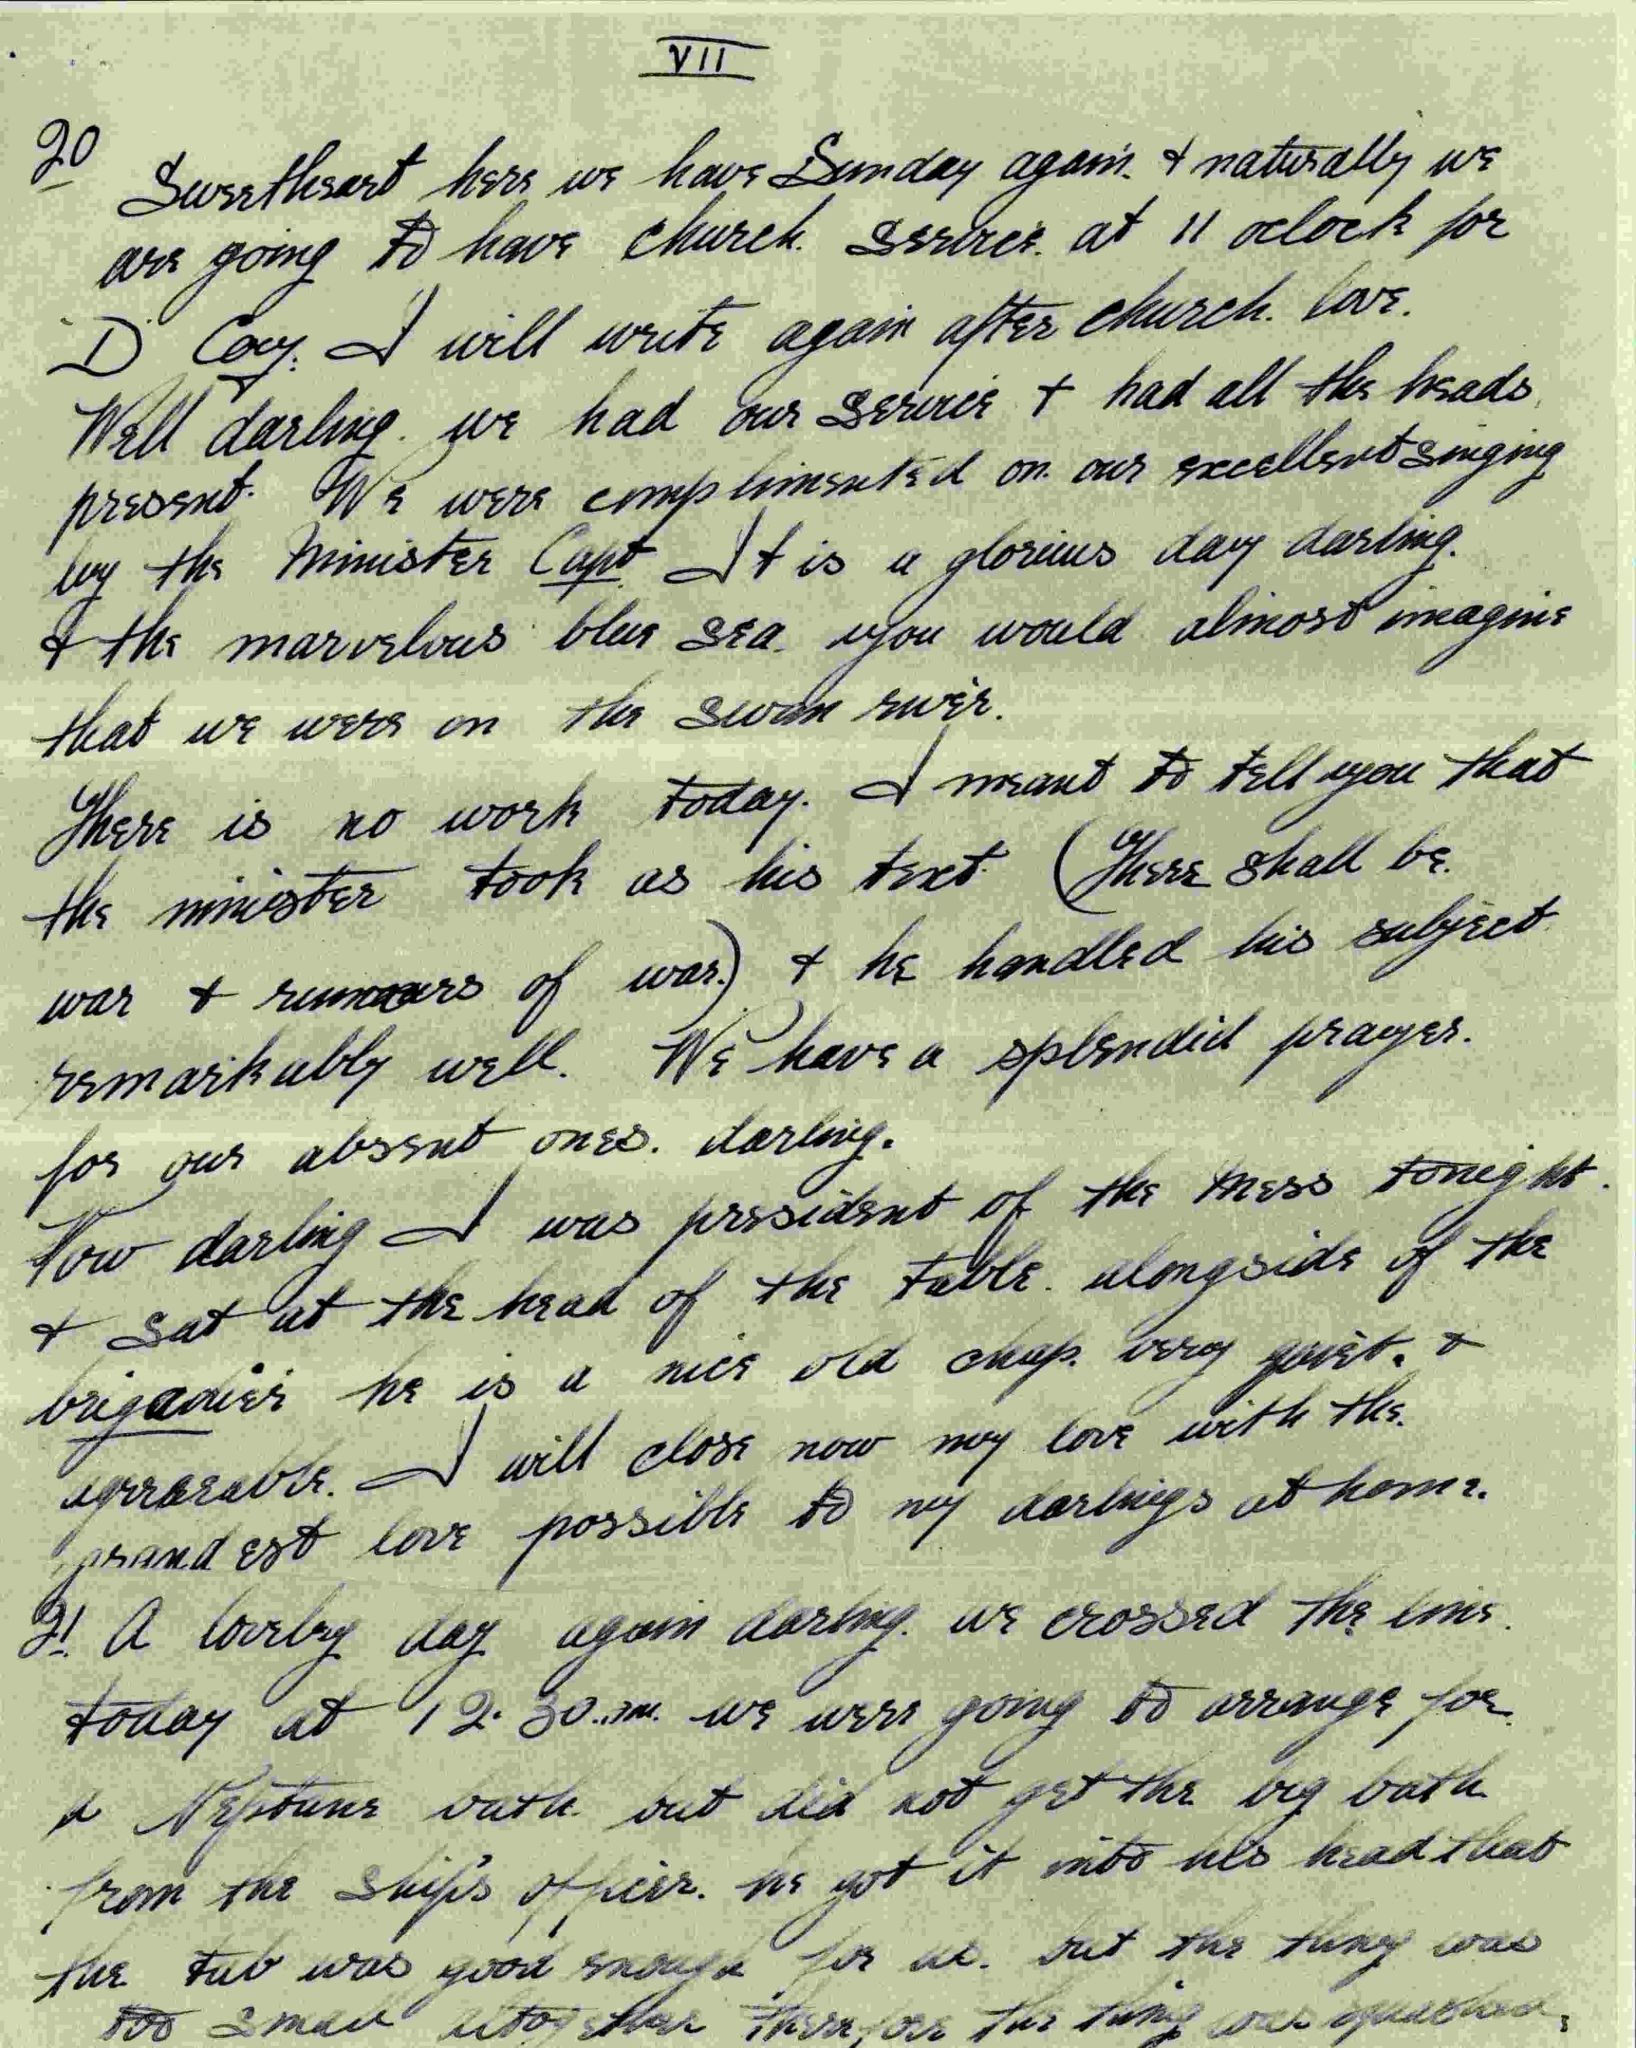 VII
20
Sweetheart here we have Sunday again. & naturally we
are going to have church. service. at 11 oclock for
'D' Coy. I will write again after church. love.
Well darling. we had our service & had all the heads
present. We were complimented on. our excellent singing
by the Minister Capt. It is a glorious day darling.
& the marvelous blue sea. you would almost imagine
that we were on the swan river.
There is no work today. I meant to tell you that
the minister took as his text. (There shall be.
war & rumours of war.) & he handled his subject
remarkably well. We have a splendid prayer.
for our absent ones. darling.
Now darling I was president of the mess tonight.
& sat at the head of the table. alongside of the
brigadier he is a nice old chap. very quiet. &
agreeable. I will close now my love with the.
grandest love possible to my darlings at home.
21. A lovely day again darling. we crossed the line.
today at 12.30. we were going to arrange for
a Neptune bath. but did not get the big bath
from the ship's officer. he got it into his head that
the tub was good enough for us. but the thing was
too small altogether therefore the thing was squashed.